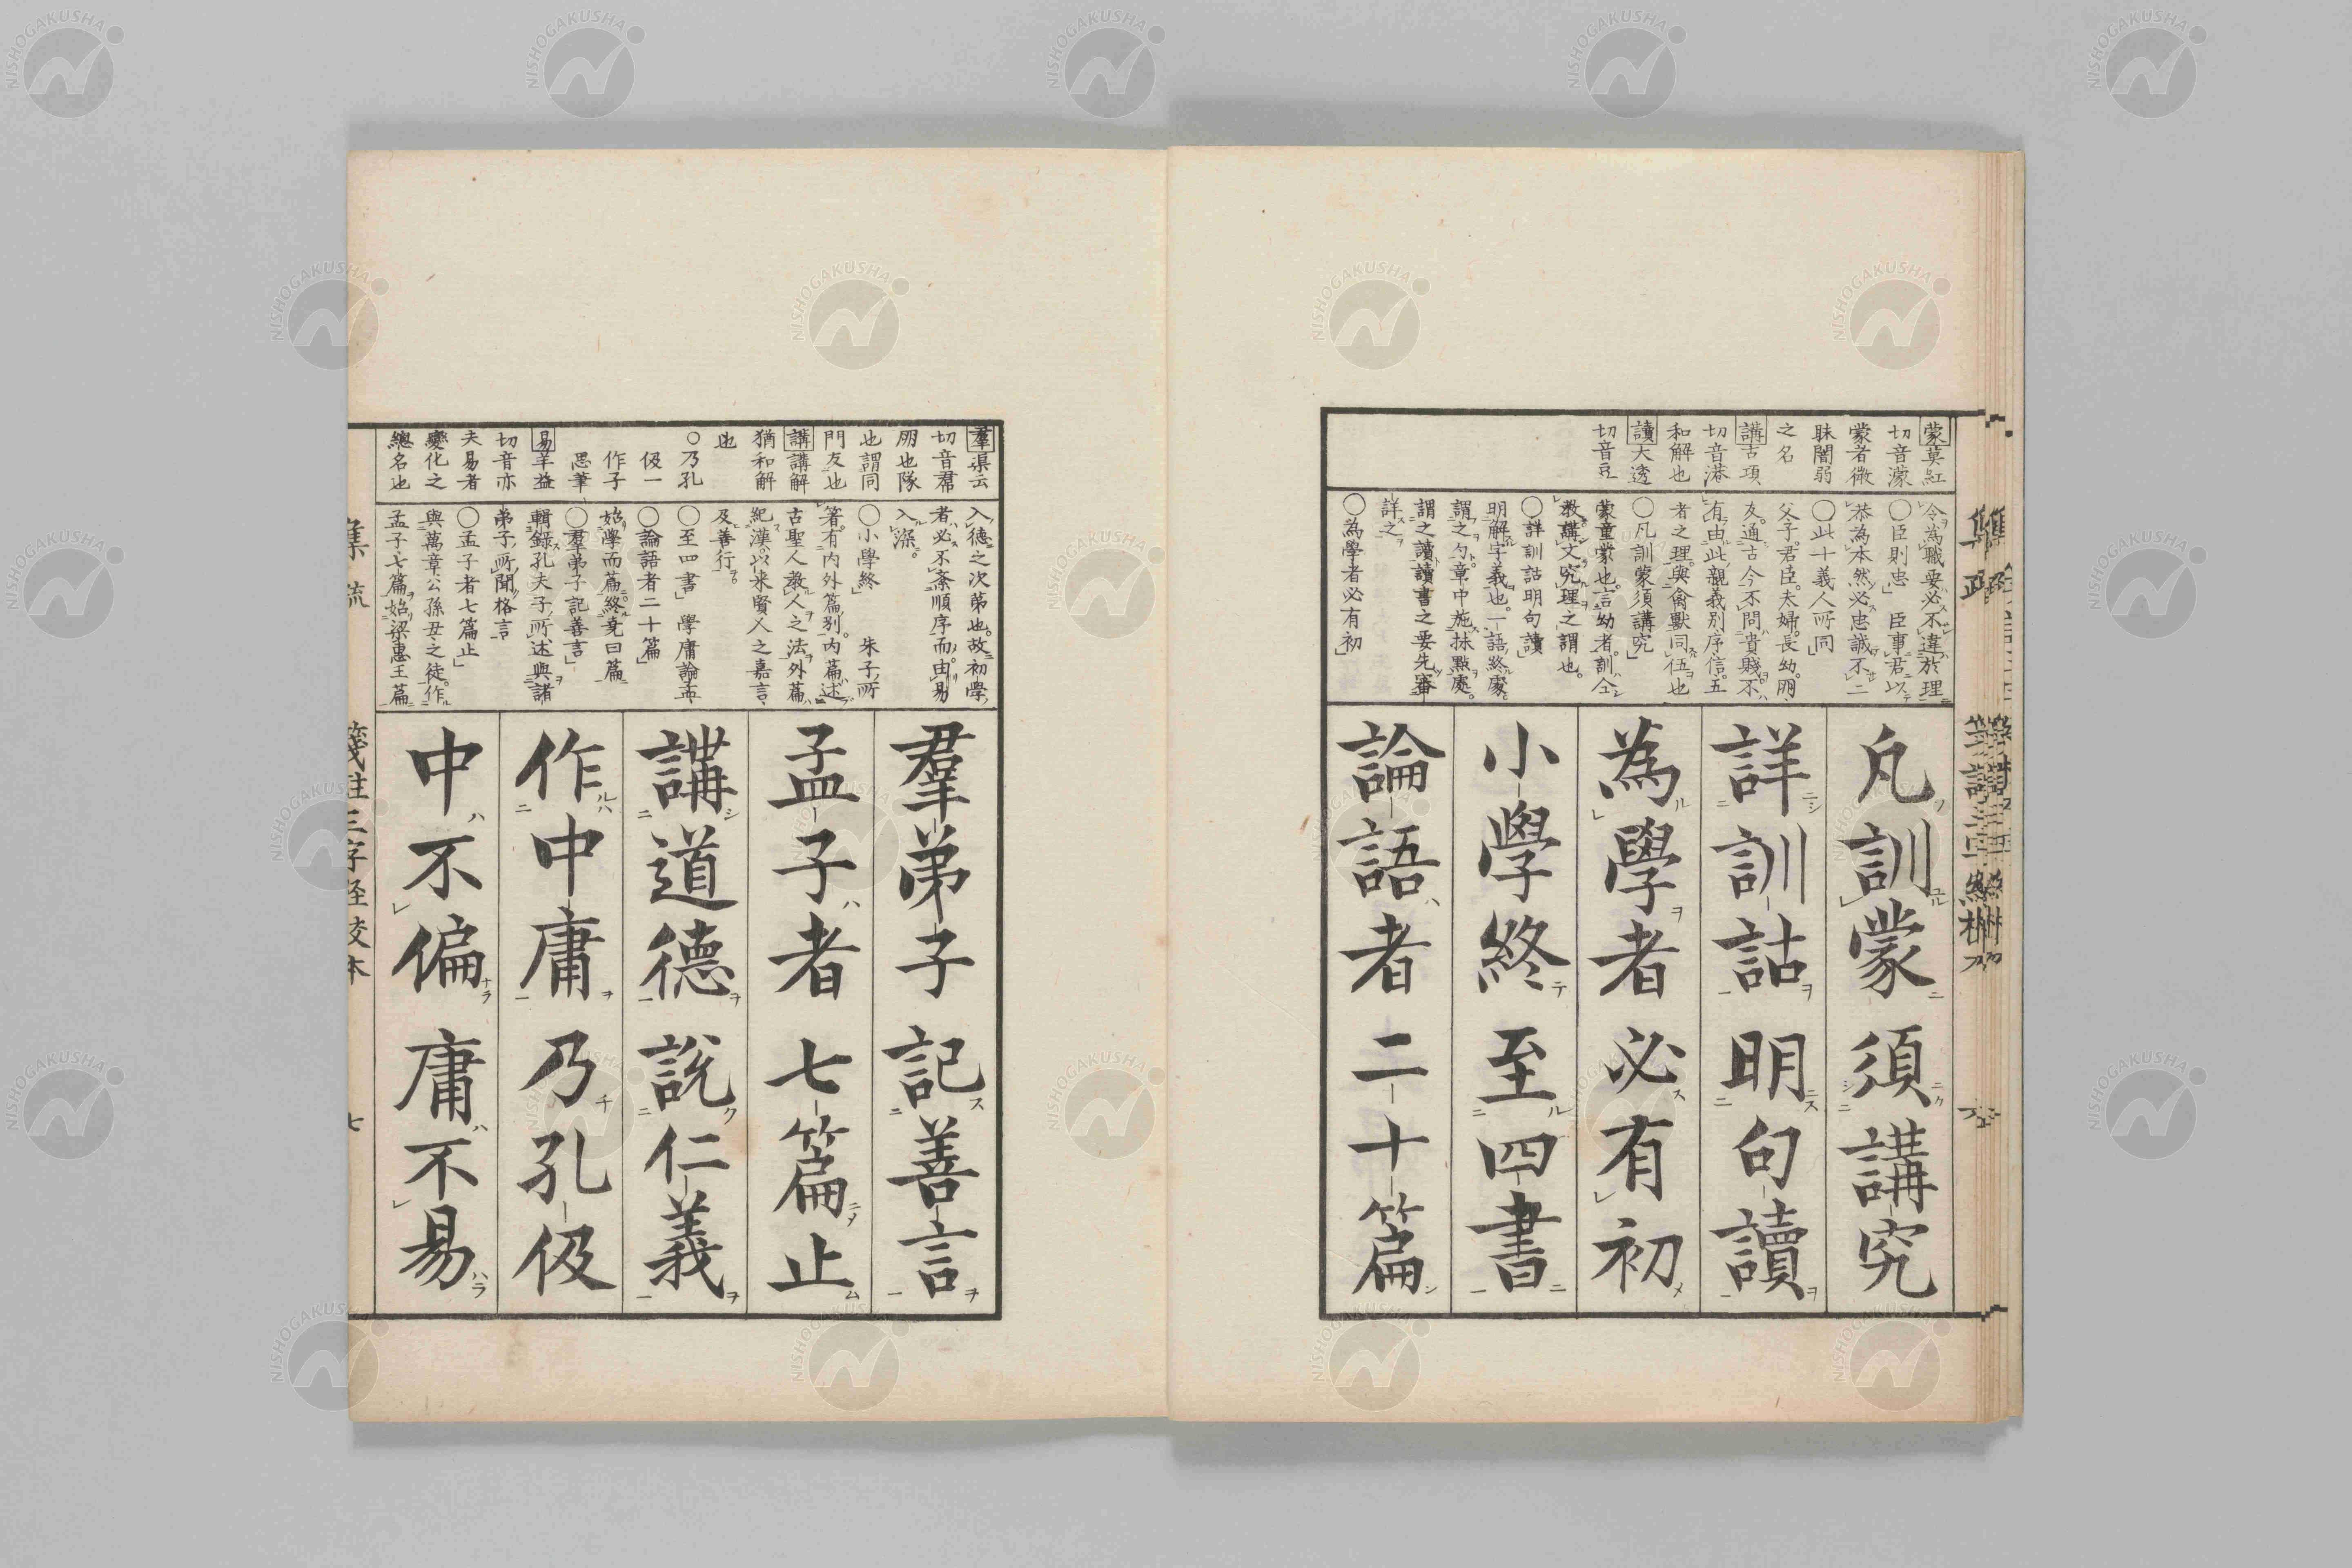 蒙莫紅
切音濛
蒙者微
昧闇弱
之名
講古項
切音港
和解也
讀大透
切音豆
令為職要必不違於理
○臣則忠 臣事君以
恭為本然必忠誠不二
○此十義人所同
父子君臣夫婦長幼朋
友通古今不問貴賤不
有由此親義別序信五
者之理與禽獸同伍也
○凡訓蒙須講究
蒙童蒙也言幼者訓仝
教講文究理之謂也
○詳訓詁明句讀
明解字義也一語終處
謂之句章中施㸃處
謂之讀讀書之要先審
詳之
○為學者必有初
凡訓蒙須講究
詳訓詁明句讀
為學者必有初
小學終至四書
論語者二十篇
羣渠云
切音帬
朋也隊
也謂同
門友也
講講解
猶和解
也
○乃孔
伋一
作子
思筆
易羊益
切音亦
夫易者
變化之
總名也
入德之次第也故初學
者必不紊順序而由易
入深
○小學終 朱子所
著有內外篇別內篇述
古聖人教人之法外篇
紀漢以來賢人之嘉言
及善行
○至四書 學庸論孟
○論語者二十篇
始學而篇終堯曰篇
○羣弟子記善言
輯錄孔夫子所述與諸
弟子所聞格言
○孟子者七篇止
與萬章公孫丑之徒作
孟子七篇始梁惠王篇
羣弟子記善言
孟子者七篇止
講道德說仁義
作中庸乃孔伋
中不偏庸不易
箋註三字經校本
七
NISHOGAKUSHA